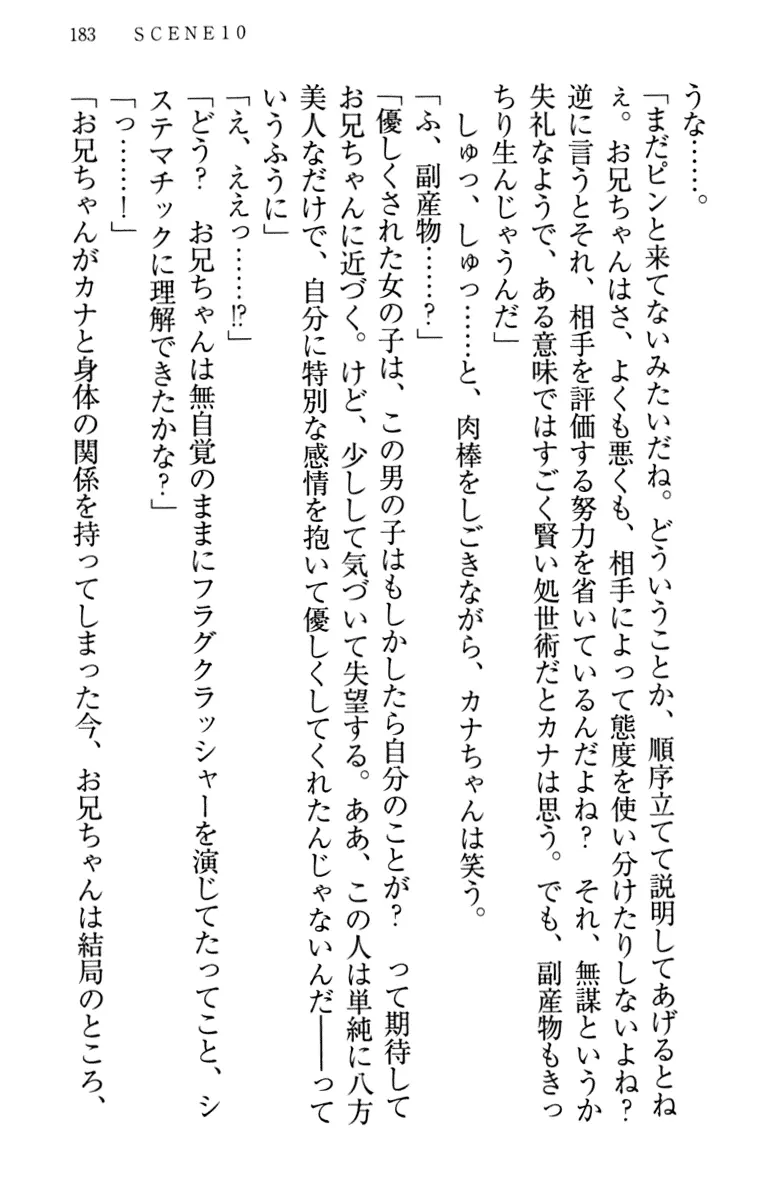 183 SCENE10
うな……。
「まだピンと来てないみたいだね。どういうことか、順序立てて説明してあげるとね
ぇ。お兄ちゃんはさ、よくも悪くも、相手によって態度を使い分けたりしないよね？
逆に言うとそれ、相手を評価する努力を省いているんだよね？　それ、無謀というか
失礼なようで、ある意味ではすごく賢い処世術だとカナは思う。でも、副産物もきっ
ちり生んじゃうんだ」
　しゅっ、しゅっ……と、肉棒をしごきながら、カナちゃんは笑う。
「ふ、副産物……？」
「優しくされた女の子は、この男の子はもしかしたら自分のことが？　って期待して
お兄ちゃんに近づく。けど、少しして気づいて失望する。ああ、この人は単純に八方
美人なだけで、自分に特別な感情を抱いて優しくしてくれたんじゃないんだ――って
いうふうに」
「え、ええっ……⁉」
「どう？　お兄ちゃんは無自覚のままにフラグクラッシャーを演じてたってこと、シ
ステマチックに理解できたかな？」
「っ……！」
「お兄ちゃんがカナと身体の関係を持ってしまった今、お兄ちゃんは結局のところ、